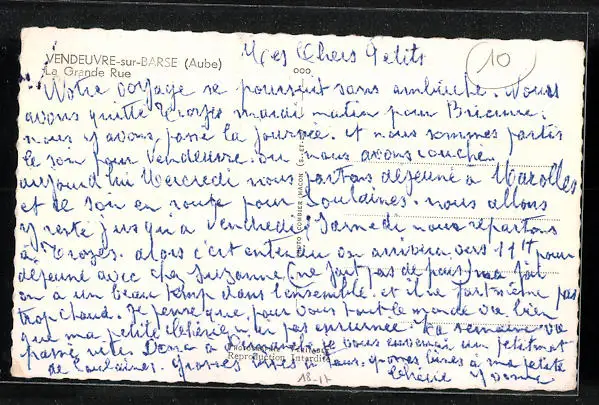 VENDEUVRE-sur-BARSE (Aube)
La Grande Rue
Mes Chers Petits
10
Notre voyage se poursuit sans ambuche. Nous
avons quitté Troyes mardi matin pour Brienne:
nous y avons passé la journée. et nous sommes partis
le soir pour Vendeuvre. ou nous avons couché.
aujourd'hui Mercredi nous partons déjeuné à Marolles
et le soir en route pour Soulaines. nous allons
y resté jusqu'a Vendredi; Samedi nous répartons
à Troyes. alors c'est entendu on arrivera vers 11H pour
déjeuné avec chez Suzanne (ne fait pas de pain) ma
on a un beau temp dans l'ensemble. et il ne fait même pas
trop chaud. Je pense que pour vous tout le monde va bien
que ma petite chérie n'est pas enrhumée. La semaine va
passé vite. Donc à Dimanche, je vous enverrai un petit mot
de Soulaines. grosses bises à tous. grosses bises à ma petite
chérie Yvonne
PHOTO COMBIER MACON (S.-et-L.)
Reproduction Interdite
18-17